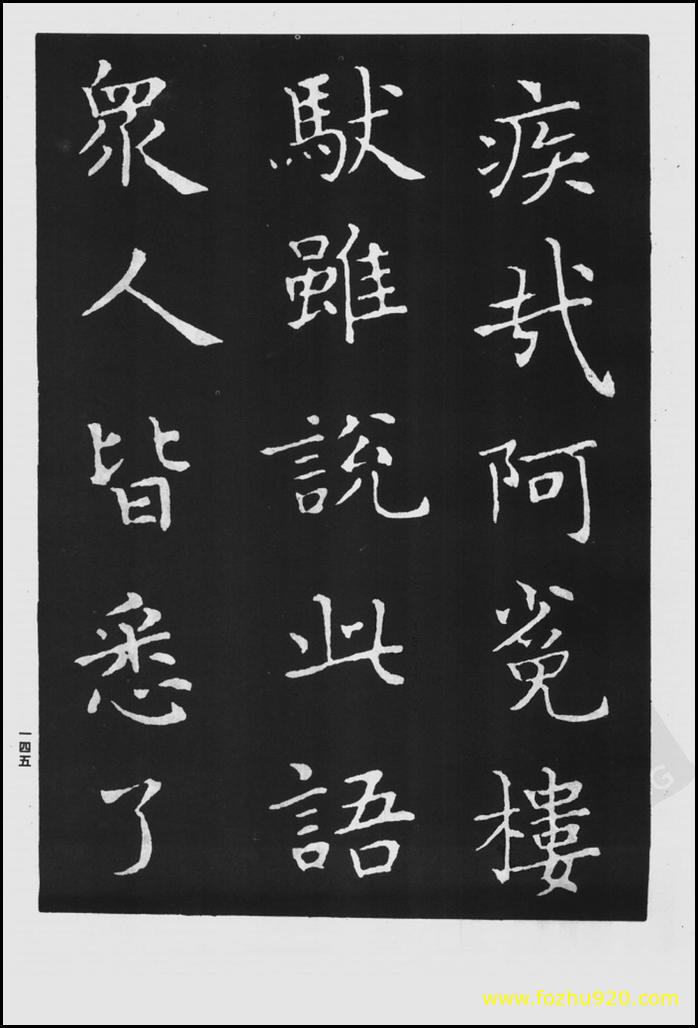 疾哉阿㝹樓
馱雖說此語
眾人皆悉了
一四五
www.fozhu920.com